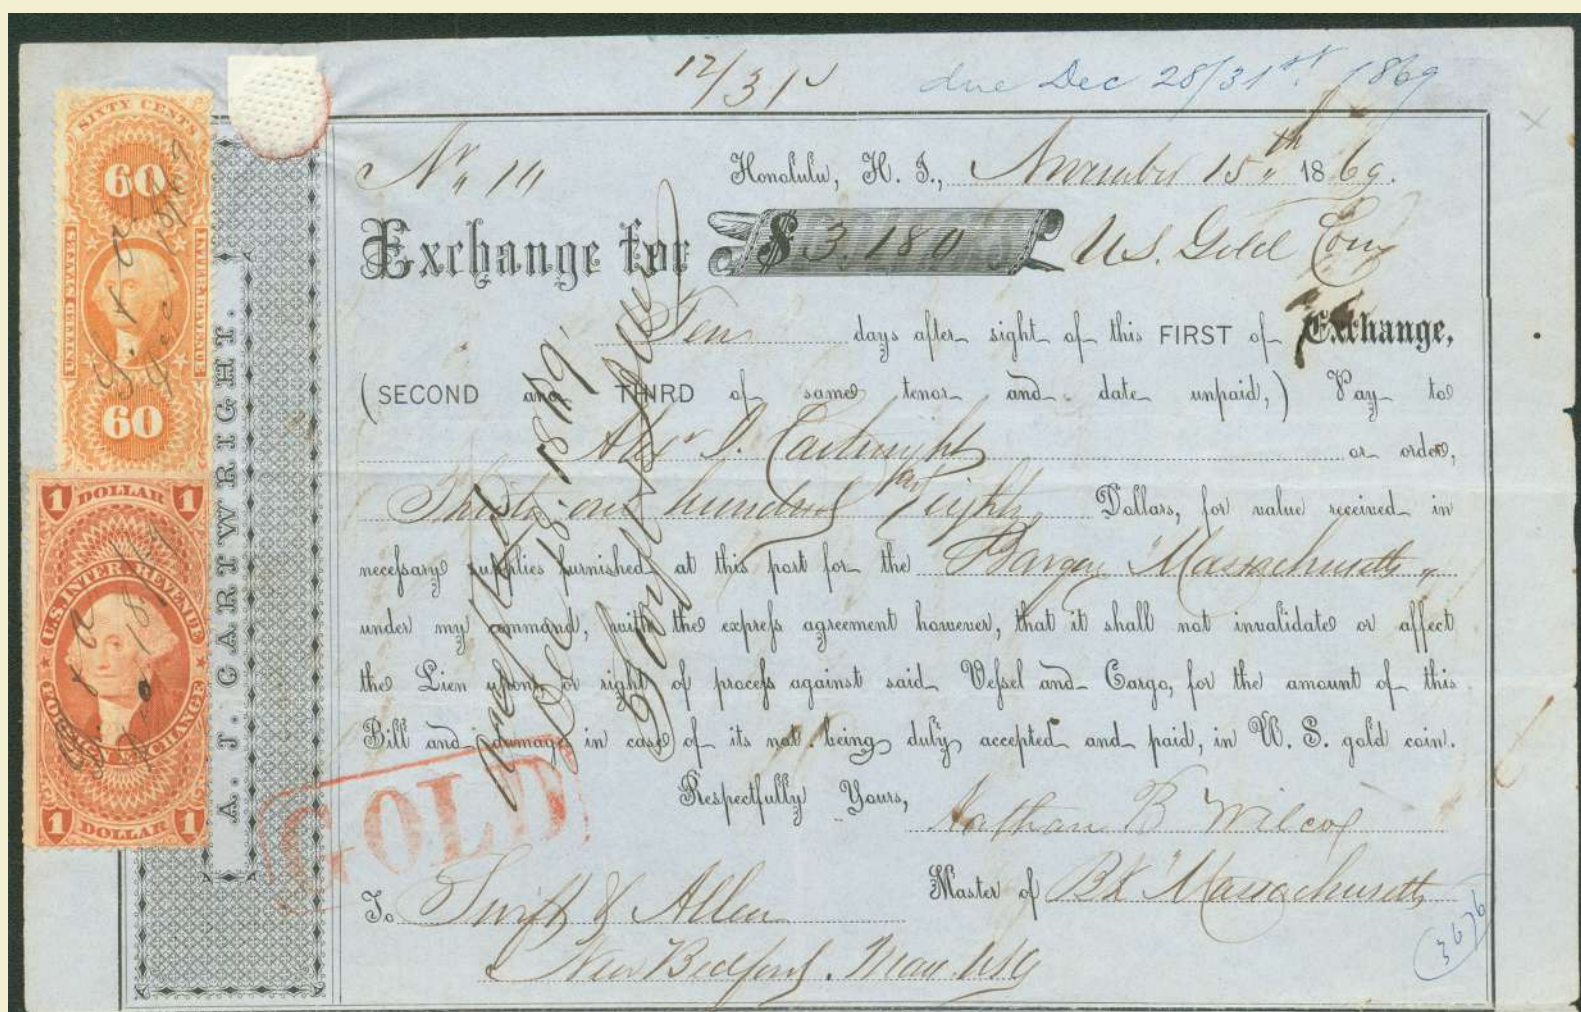 12/31
due Dec 28/31st. 1869
No 14 Honolulu, H. I., November 15th 1869.
Exchange for $ 3.180 U.S. Gold Coin
Ten days after sight of this FIRST of Exchange,
(SECOND and THIRD of same tenor and date unpaid,) Pay to
Alexr J. Cartwright or order,
Thirty-one hundred and Eighty Dollars, for value received in
necessary supplies furnished at this port for the Barque "Massachusetts"
under my command, with the express agreement however, that it shall not invalidate or affect
the Lien upon or right of process against said Vessel and Cargo, for the amount of this
Bill and damage in case of its not being duly accepted and paid, in U. S. gold coin.
Respectfully Yours, Nathan B Wilcox
Master of Bk "Massachusetts"
To Swift & Allen
New Bedford. Mass. USA
Accepted
Dec 18. 1869
Swift & Allen
A. J. CARTWRIGHT.
GOLD
SIXTY CENTS
60
UNITED STATES
INTER. REVENUE
60
S & A
Dec 18/69
1 DOLLAR 1
U.S. INTER. REVENUE
FOREIGN EXCHANGE
S & A
1 DOLLAR 1
3676